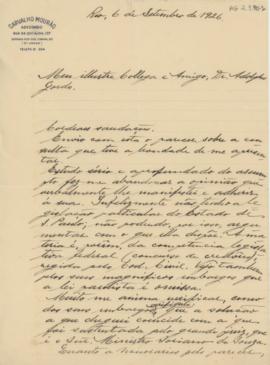 CARVALHO MOURÃO
ADVOGADO
RUA DA QUITANDA
Rio, 6 de Setembro de 1926
Meu illustre Collega e Amigo, Dr. Adolpho
Gordo.
Cordiaes saudações.
Envio com esta o parecer sobre a con
sulta que teve a bondade de me apresen
tar.
Estudo sério e aprofundado do assum
pto fez-me abandonar a opinião que
verbalmente lhe manifestei e adherir
á sua. Infelizmente não pedia a le
gislação particular do Estado de
S. Paulo; não podendo, por isso, argu
mentar com o que ella dispõe. A ma
teria é, porém, da competencia legisla
tiva federal (concurso de credores),
regida pelo Cod. Civil. Vejo tambem
pelos seus magnificos embargos que
a lei paulista é omissa.
Muito me anima verificar, como
dos seus embargos verifiquei, que a solução
a que cheguei coincide com a que
foi sustentada pelo grande juiz que
é o Snr. Ministro Soriano de Souza.
Quanto a honorarios pelo parecer,